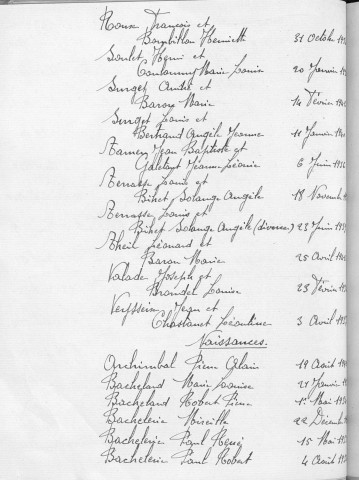 Roux François et
Bombillon Henriette 31 Octobre
Soulet Henri et
Marie Louise 20 Janvier
Surget André et
Baron Marie 14 Février
Surget Louis et
Bertrand Angèle Jeanne 11 Janvier
Jean Baptiste et
Galetant Jeanne Léonie 6 Juin
Terrasse Louis et
Bihet Solange Angèle 18 Novemb
Terrasse Louis et
Bihet Solange Angèle (divorce) 23 Juin
Theil Léonard et
Baron Marie 25 Avril
Valade Joseph et
Brandel Louise 23 Février
Jean et
Chastanet Léontine 3 Avril
Naissances.
Archimbal Pierre Alain 19 Août
Bachelard Marie Louise 21 Janvier
Bachelard Robert Pierre 1er Mai
Bachelerie Mireille 22 Décemb
Bachelerie Paul Henri 15 Mai
Bachelerie Paul Robert 4 Août